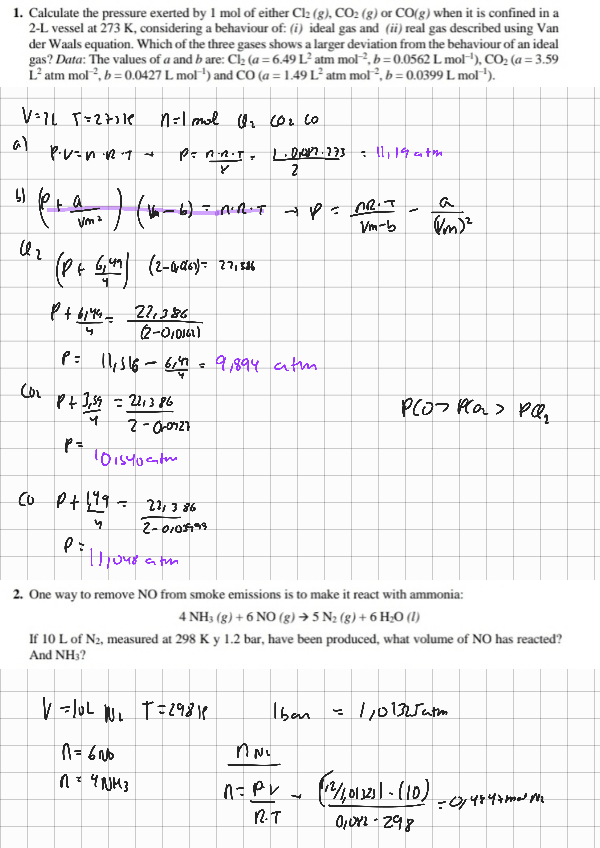 1. Calculate the pressure exerted by 1 mol of either Cl₂ (g), CO₂ (g) or CO(g) when it is confined in a
2-L vessel at 273 K, considering a behaviour of: (i) ideal gas and (ii) real gas described using Van
der Waals equation. Which of the three gases shows a larger deviation from the behaviour of an ideal
gas? Data: The values of a and b are: Cl₂ (a = 6.49 L² atm mol⁻², b = 0.0562 L mol⁻¹), CO₂ (a = 3.59
L² atm mol⁻², b = 0.0427 L mol⁻¹) and CO (a = 1.49 L² atm mol⁻², b = 0.0399 L mol⁻¹).
V=2L T=273K n=1 mol Cl₂ CO₂ CO
a) P·V=n·R·T → P= n·R·T/V = 1·0,082·273/2 = 11,19 atm
b) (P + a/Vm²) (Vm-b) = n·R·T → P = nR·T/Vm-b - a/(Vm)²
Cl₂
(P+ 6,49/4) (2-0,0562)= 22,386
P+ 6,49/4 = 22,386/(2-0,0562)
P= 11,516 - 6,49/4 = 9,894 atm
CO₂ P+ 3,59/4 = 22,386/2-0,0427
PCO > PCO₂ > PCl₂
P= 10,540 atm
CO P+ 1,49/4 = 22,386/2-0,0399
P= 11,048 atm
2. One way to remove NO from smoke emissions is to make it react with ammonia:
4 NH₃ (g) + 6 NO (g) → 5 N₂ (g) + 6 H₂O (l)
If 10 L of N₂, measured at 298 K y 1.2 bar, have been produced, what volume of NO has reacted?
And NH₃?
V=10L N₂ T=298K 1bar = 1,01325atm
n= 6NO n N₂
n= 4NH₃ n= PV/R·T = (1,2/1,01325)·(10)/0,082·298 = 0,4847mol N₂